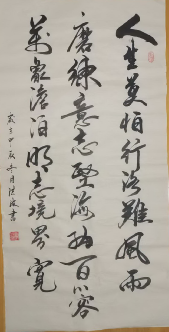 人生莫怕行路难风雨
磨练意志坚海纳百川容
万象澹泊明志境界宽
岁在甲辰冬月洪波书